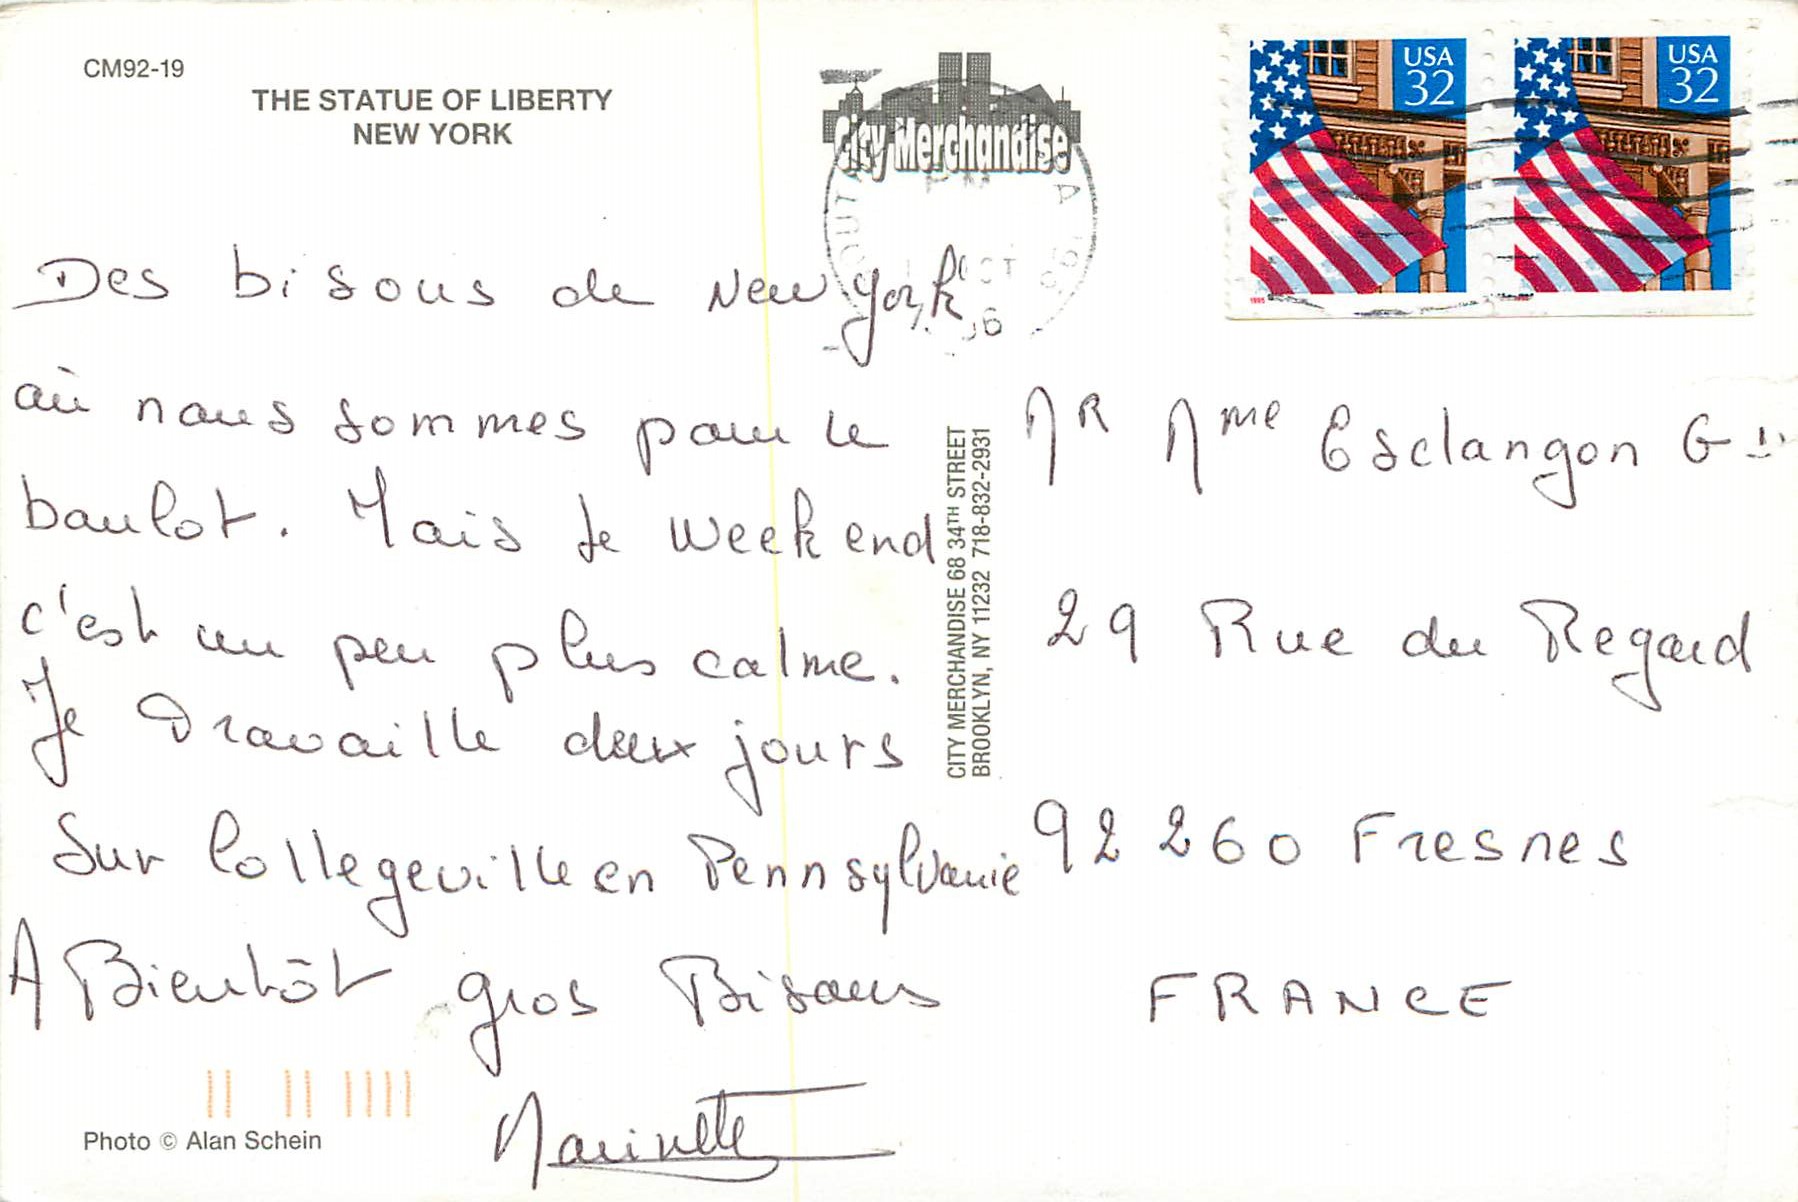 CM92-19
THE STATUE OF LIBERTY
NEW YORK
City Merchandise
USA
32
USA
32
1995
OCT
Des bisous de New York
où nous sommes pour le
boulot. Mais le week end
c'est un peu plus calme.
Je Travaille deux jours
Sur Collegeville en Pennsylvanie
A Bientôt gros Bisous
Marinette
Photo © Alan Schein
CITY MERCHANDISE 68 34TH STREET
BROOKLYN, NY 11232 718-832-2931
MR Mme Esclangon G
29 Rue du Regard
92 260 Fresnes
FRANCE